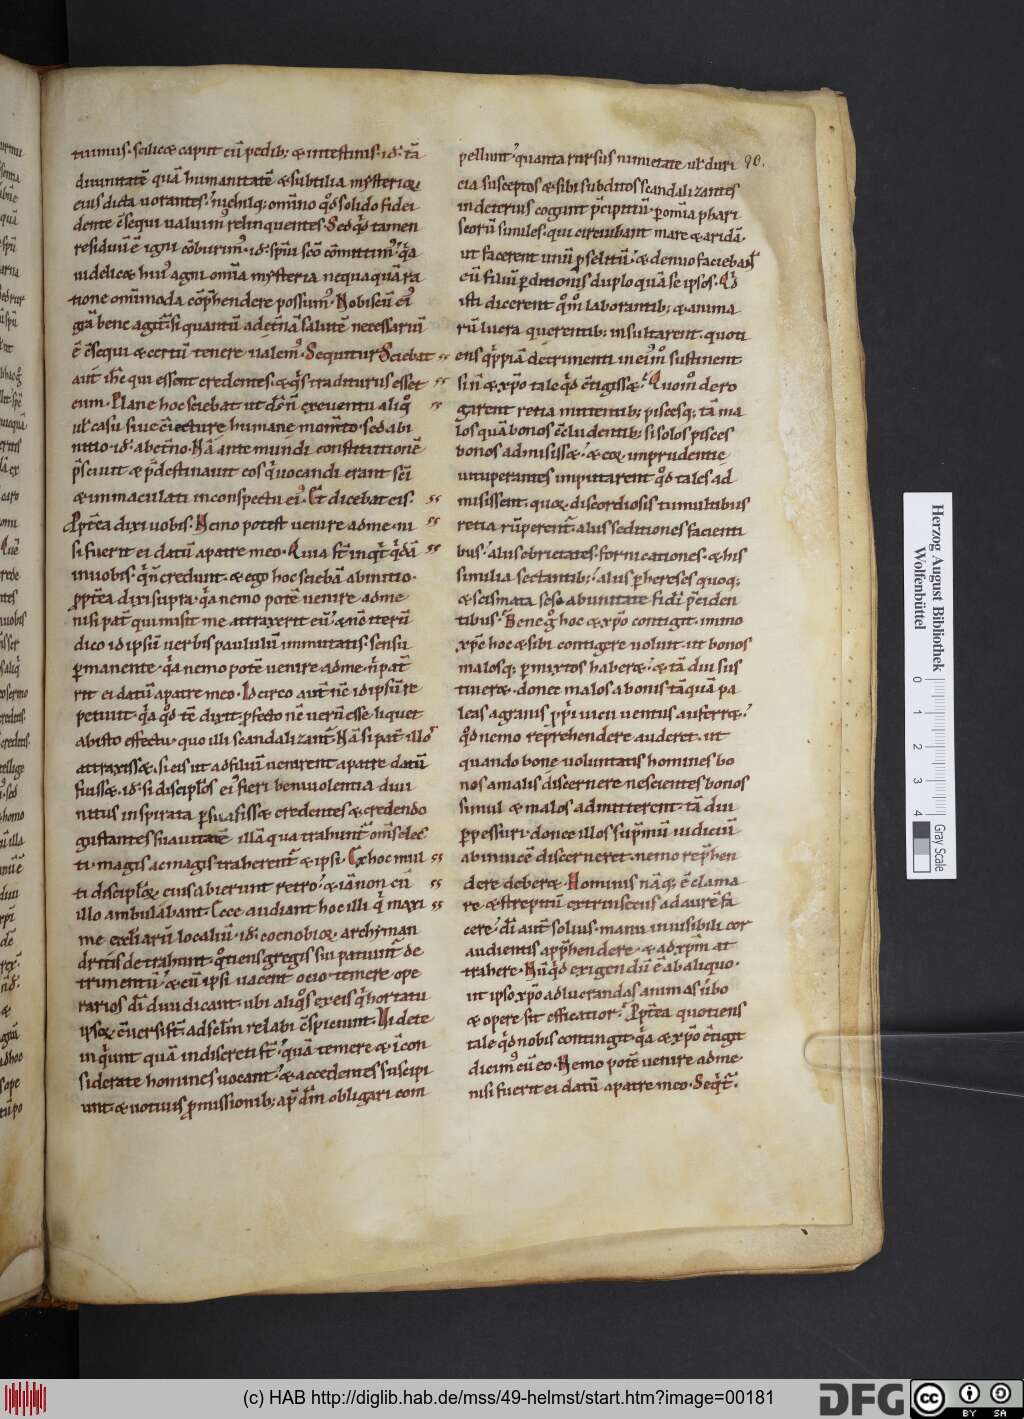 tiuimus. scilicæ caput cū pedib; & intestinis. id. tā
diuinitatē quā humanitatē & subtilia mysteriorꝫ
eius dicta uorantes. nichilq; omīno qđ solido fidei
dente c̄sequi ualuimꝰ relinquentes. Sed qđ tamen
residuū ē igni cōburimꝰ. id. sp̄ui sc̄o cōmittimꝰ. qa
uidelicæ huiꝰ agni om̄ia mysteria nequaquā ra
tione omimoda cōp̄hendere possumꝰ. Nobiscū ei
bene agit̄ si quantū ad et̄nā salutē necessariū
ē c̄sequi & certū tenere ualemꝰ. Sequitur Sciebat
aut̄ ih̄c qui essent credentes. & qs traditurus esset
eum. Plane hoc sciebat ut dn̄s ex euentu aliq°
uł casu siue c̄iecture humane momto. sed ab i
nitio. id. ab et̄no. Nā ante mundi constitutionē
p̄sciuit & p̄destinauit eos q̄ uocandi erant sc̄i
& inmaculati in conspectu eiꝰ. Et dicebat eis.
Propt̄ea dixi uobis. Nemo potest uenire ad me. ni
si fuerit ei datū a patre meo. Quia st̄ inqt̄ qdā
in uobis. q̄ n̄ credunt. & ego hoc sciebā ab initio.
propt̄ea dixi supra. qa nemo potē uenire ad me
nisi pat̄ qui misit me attraxerit eū. & nc̄ iterū
dico id ipsū uerbis paululū immutatis. sensu
permanente. qa nemo potē uenire ad me. n̄ pat̄
rit ei datū a patre meo. Idcirco aut̄ nc̄ id ipsū re
petiuit. qa qđ tē dixit. p̄fecto nē uerū esse liquet
abisto effectu. quo illi scandalizant̄. Nā si pat̄ illos
attraxissæ. si eis ut ad filiū uenirent a patre datū
fuissæ. id. si discipłos eiꝰ fieri beniuolentia diui
nitus inspirata persuasissæ credentes & credendo
gustantes suauitatē illā qua trahunt̄ om̄s elec
ti. magis ac magis traherent̄ & ipsi. Ex hoc mul
ti discipłorꝫ eius abierunt retro. & iā non cū
illo ambulabant. Ecce audiant hoc illi q maxi
me localiū. id. coenobiorꝫ. archyman
dritis detrahunt. qtiens gregis sui patiunt̄ de
trimentū. & cū ipsi uacent ocio. temere ope
rarios dī diiudicant. ubi aliqs ex eis q hortatu
ipsorꝫ c̄uersi st̄. ad sēlm relabi c̄spiciunt. Uidete
inqunt quā indiscreti st̄. quā temere & īcon
siderate homines uocant. & accedentes suscipi
unt. & uotiuis p̄missionib; ap̄ dm̄ obligari com
pellunt. quanta rursus nimietate uł duri 90.
cia susceptos & sibi subditos scandalizantes
in deterius cogunt p̄cipitiū. per om̄ia phari
seorū similes. qui circuibant mare & aridā.
ut facerent unū p̄selitū. & denuo faciebant
eū filiū p̄ditionis duplo quā se ipsos. Qđ
isti dicerent q°m° laborantib; & anima
rū lucra querentib; insultarent. quoti
ens qppiā detrimenti in eim° sustinent
si n̄ & xp̄o tale qđ c̄tigissæ. Quom° dero
garent retia mittentib; piscesq; tā ma
los quā bonos c̄cludentib; si solos pisces
bonos admisissæ. & eorꝫ imprudentie
uituperantes imputarent qđ tales ad
misissent. quorꝫ discordiosis tumultibus
retia rūperent̄. alius seditiones facienti
bus. alius ebrietates. fornicationes. & his
similia sectantib;. alius p hereses quoq;
& scismata sese ab unitate fidī p̄ciden
tibus. Bene g hoc & xp̄o contigit. immo
xp̄c hoc & sibi contigere uoluit. ut bonos
malosq; permixtos haberæ. & tā diu sus
tineræ. donec malos a bonis tāquā pa
leas a granis pprī iudicii uentus auferræ.
qđ nemo reprehendere auderet. ut
quando bone uoluntatis homines bo
nos a malis discernere nescientes bonos
simul & malos admitterent. tā diu
perpessuri. donec illos sup̄mū iudiciū
abinuicē discerneret. nemo rep̄hen
dere deberæ. Hominis nāq; ē clama
re & strepitū extrinsecus ad aurē fa
cere. dī aut̄ solius. manu inuisibili cor
audientis app̄hendere. & ad xp̄m at
trahere. Nūqđ exigendū ē ab aliquo.
ut ipso xp̄o ad lucrandas animas ūbo
& opere sit efficatior. Propt̄ea quotiens
tale qđ nobis contingit. qa & xp̄o c̄tigit
dicimꝰ cū eo. Nemo potē uenire ad me.
nisi fuerit ei datū a patre meo. Seqt̄.
Herzog August Bibliothek
Wolfenbüttel
0 1 2 3 4
Gray Scale
(c) HAB http://diglib.hab.de/mss/49-helmst/start.htm?image=00181
DFG
cc BY SA